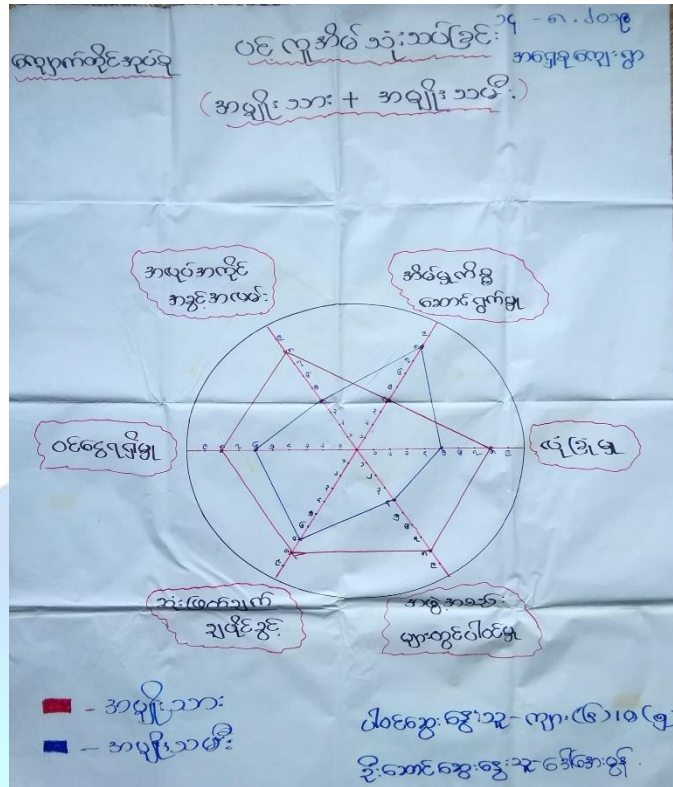 ကျောက်တိုင်အုပ်စု
ပင့်ကူအိမ်သုံးသပ်ခြင်း
၁၄ - ၈ - ၂၀၁၉
အရှေ့စုကျေးရွာ
(အမျိုးသား + အမျိုးသမီး)
အလုပ်အကိုင်
အခွင့်အလမ်း
အိမ်မှုကိစ္စ
ဆောင်ရွက်မှု
ဝင်ငွေရရှိမှု
လုံခြုံမှု
ဆုံးဖြတ်ချက်
ချပိုင်ခွင့်
အဖွဲ့အစည်း
များတွင်ပါဝင်မှု
- အမျိုးသား
- အမျိုးသမီး
ပါဝင်ဆွေးနွေးသူ - ကျား(၆)၊ မ(၅)
ဦးဆောင်ဆွေးနွေးသူ - ဒေါ်အေးမွန်